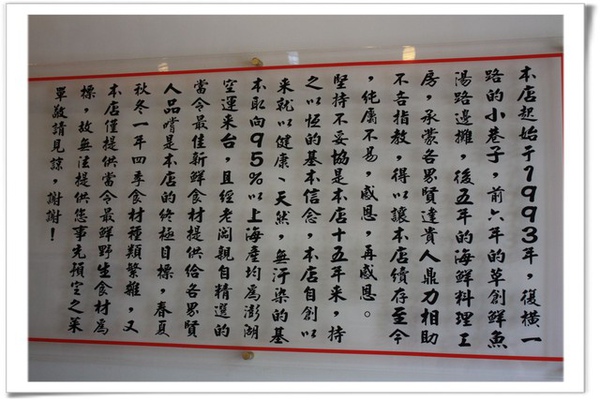 本店起始于1993年，復橫一
路的小巷子，前六年的草創鮮魚
湯路邊攤，後五年的海鮮料理工
房，承蒙各界賢達貴人鼎力相助
不吝指教，得以讓本店續存至今
，純屬不易，感恩，再感恩。
堅持不妥協是本店十五年來，持
之以恆的基本信念，本店自創以
來就以健康、天然，無汙染的基
本取向95%以上海產均為澎湖
空運來台，且經老闆親自精選的
當令最佳新鮮食材提供給各界賢
人品嚐是本店的終極目標，春夏
秋冬一年四季食材種類繁雜，又
本店僅提供當令最鮮野生食材為
標，故無法提供您事先預定之菜
單敬請見諒，謝謝！